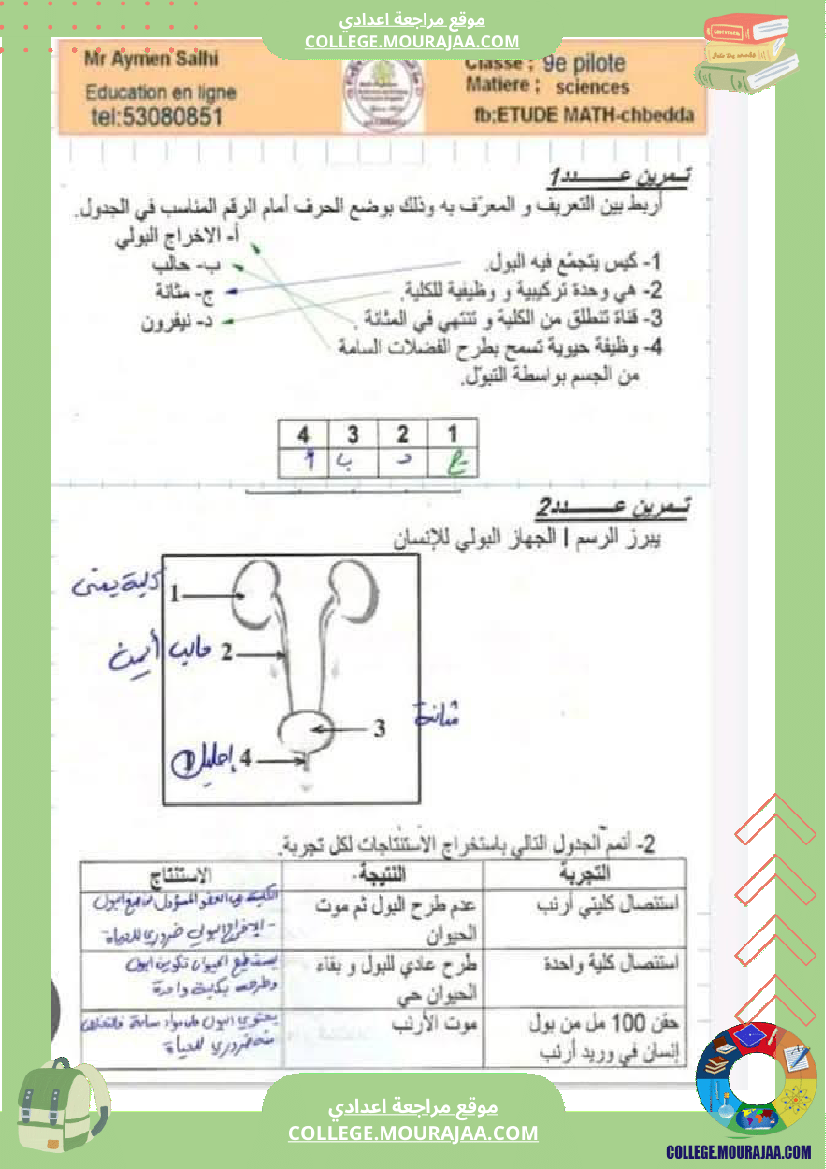 موقع مراجعة اعدادي
COLLEGE.MOURAJAA.COM
Mr Aymen Salhi
Education en ligne
tel:53080851
Classe : 9e pilote
Matiere : sciences
fb:ETUDE MATH-chbedda
تمرين عدد1
أربط بين التعريف و المعرّف به وذلك بوضع الحرف أمام الرقم المناسب في الجدول.
أ- الاخراج البولي
1- كيس يتجمّع فيه البول.
ب- حالب
2- هي وحدة تركيبية و وظيفية للكلية.
ج- مثانة
3- قناة تنطلق من الكلية و تنتهي في المثانة.
د- نيفرون
4- وظيفة حيوية تسمح بطرح الفضلات السامة
من الجسم بواسطة التبوّل.
1 2 3 4
ج د ب أ
تمرين عدد2
يبرز الرسم I الجهاز البولي للإنسان
1 كلية يمنى
2 حالب أيمن
3 مثانة
4 إحليل
2- أتمم الجدول التالي باستخراج الاستنتاجات لكل تجربة.
التجربة النتيجة الاستنتاج
استئصال كليتي أرنب
عدم طرح البول ثم موت
الحيوان
الكلية هي العضو المسؤول
- الإخراج البولي ضروري للحياة
استئصال كلية واحدة
طرح عادي للبول و بقاء
الحيوان حي
يستطيع الحيوان تكوين البول
وطرحه بكلية واحدة
حقن 100 مل من بول
إنسان في وريد أرنب
موت الأرنب
يحتوي البول على مواد سامة
منه ضروري للحياة
موقع مراجعة اعدادي
COLLEGE.MOURAJAA.COM
COLLEGE.MOURAJAA.COM